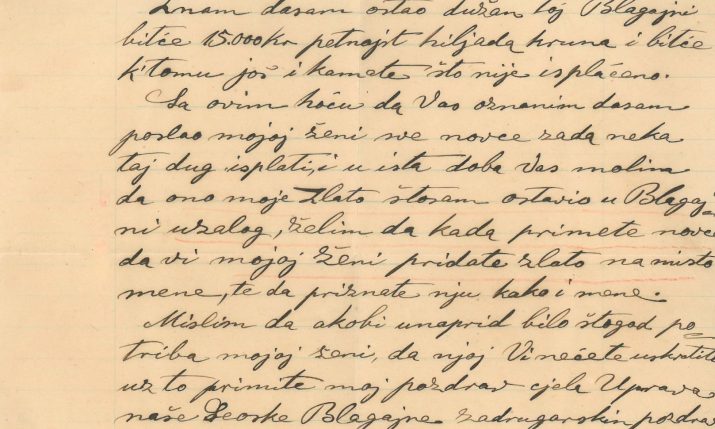 Znam dasam ostao dužan toj Blagajni
bitće 15.000Kr petnajst hiljada kruna i bitće
k'tomu još i kamete što nije isplaćeno.
Sa ovim hoću da Vas oznanim dasam
poslao mojoj ženi sve novce zada neka
taj dug isplati, i u ista doba Vas molim
da ono moje zlato štosam ostavio u Blagaj=
ni uzalog, želim da kada primete novce
da vi mojoj ženi pridate zlato namisto
mene, te da priznate nju kako i mene.
Mislim da akobi unaprid bilo štogod po=
triba mojoj ženi, da njoj Vi nećete uskratit
uz to primite moj pozdrav cjela Uprava
naše Seoske Blagajne zadrugarskin pozdra